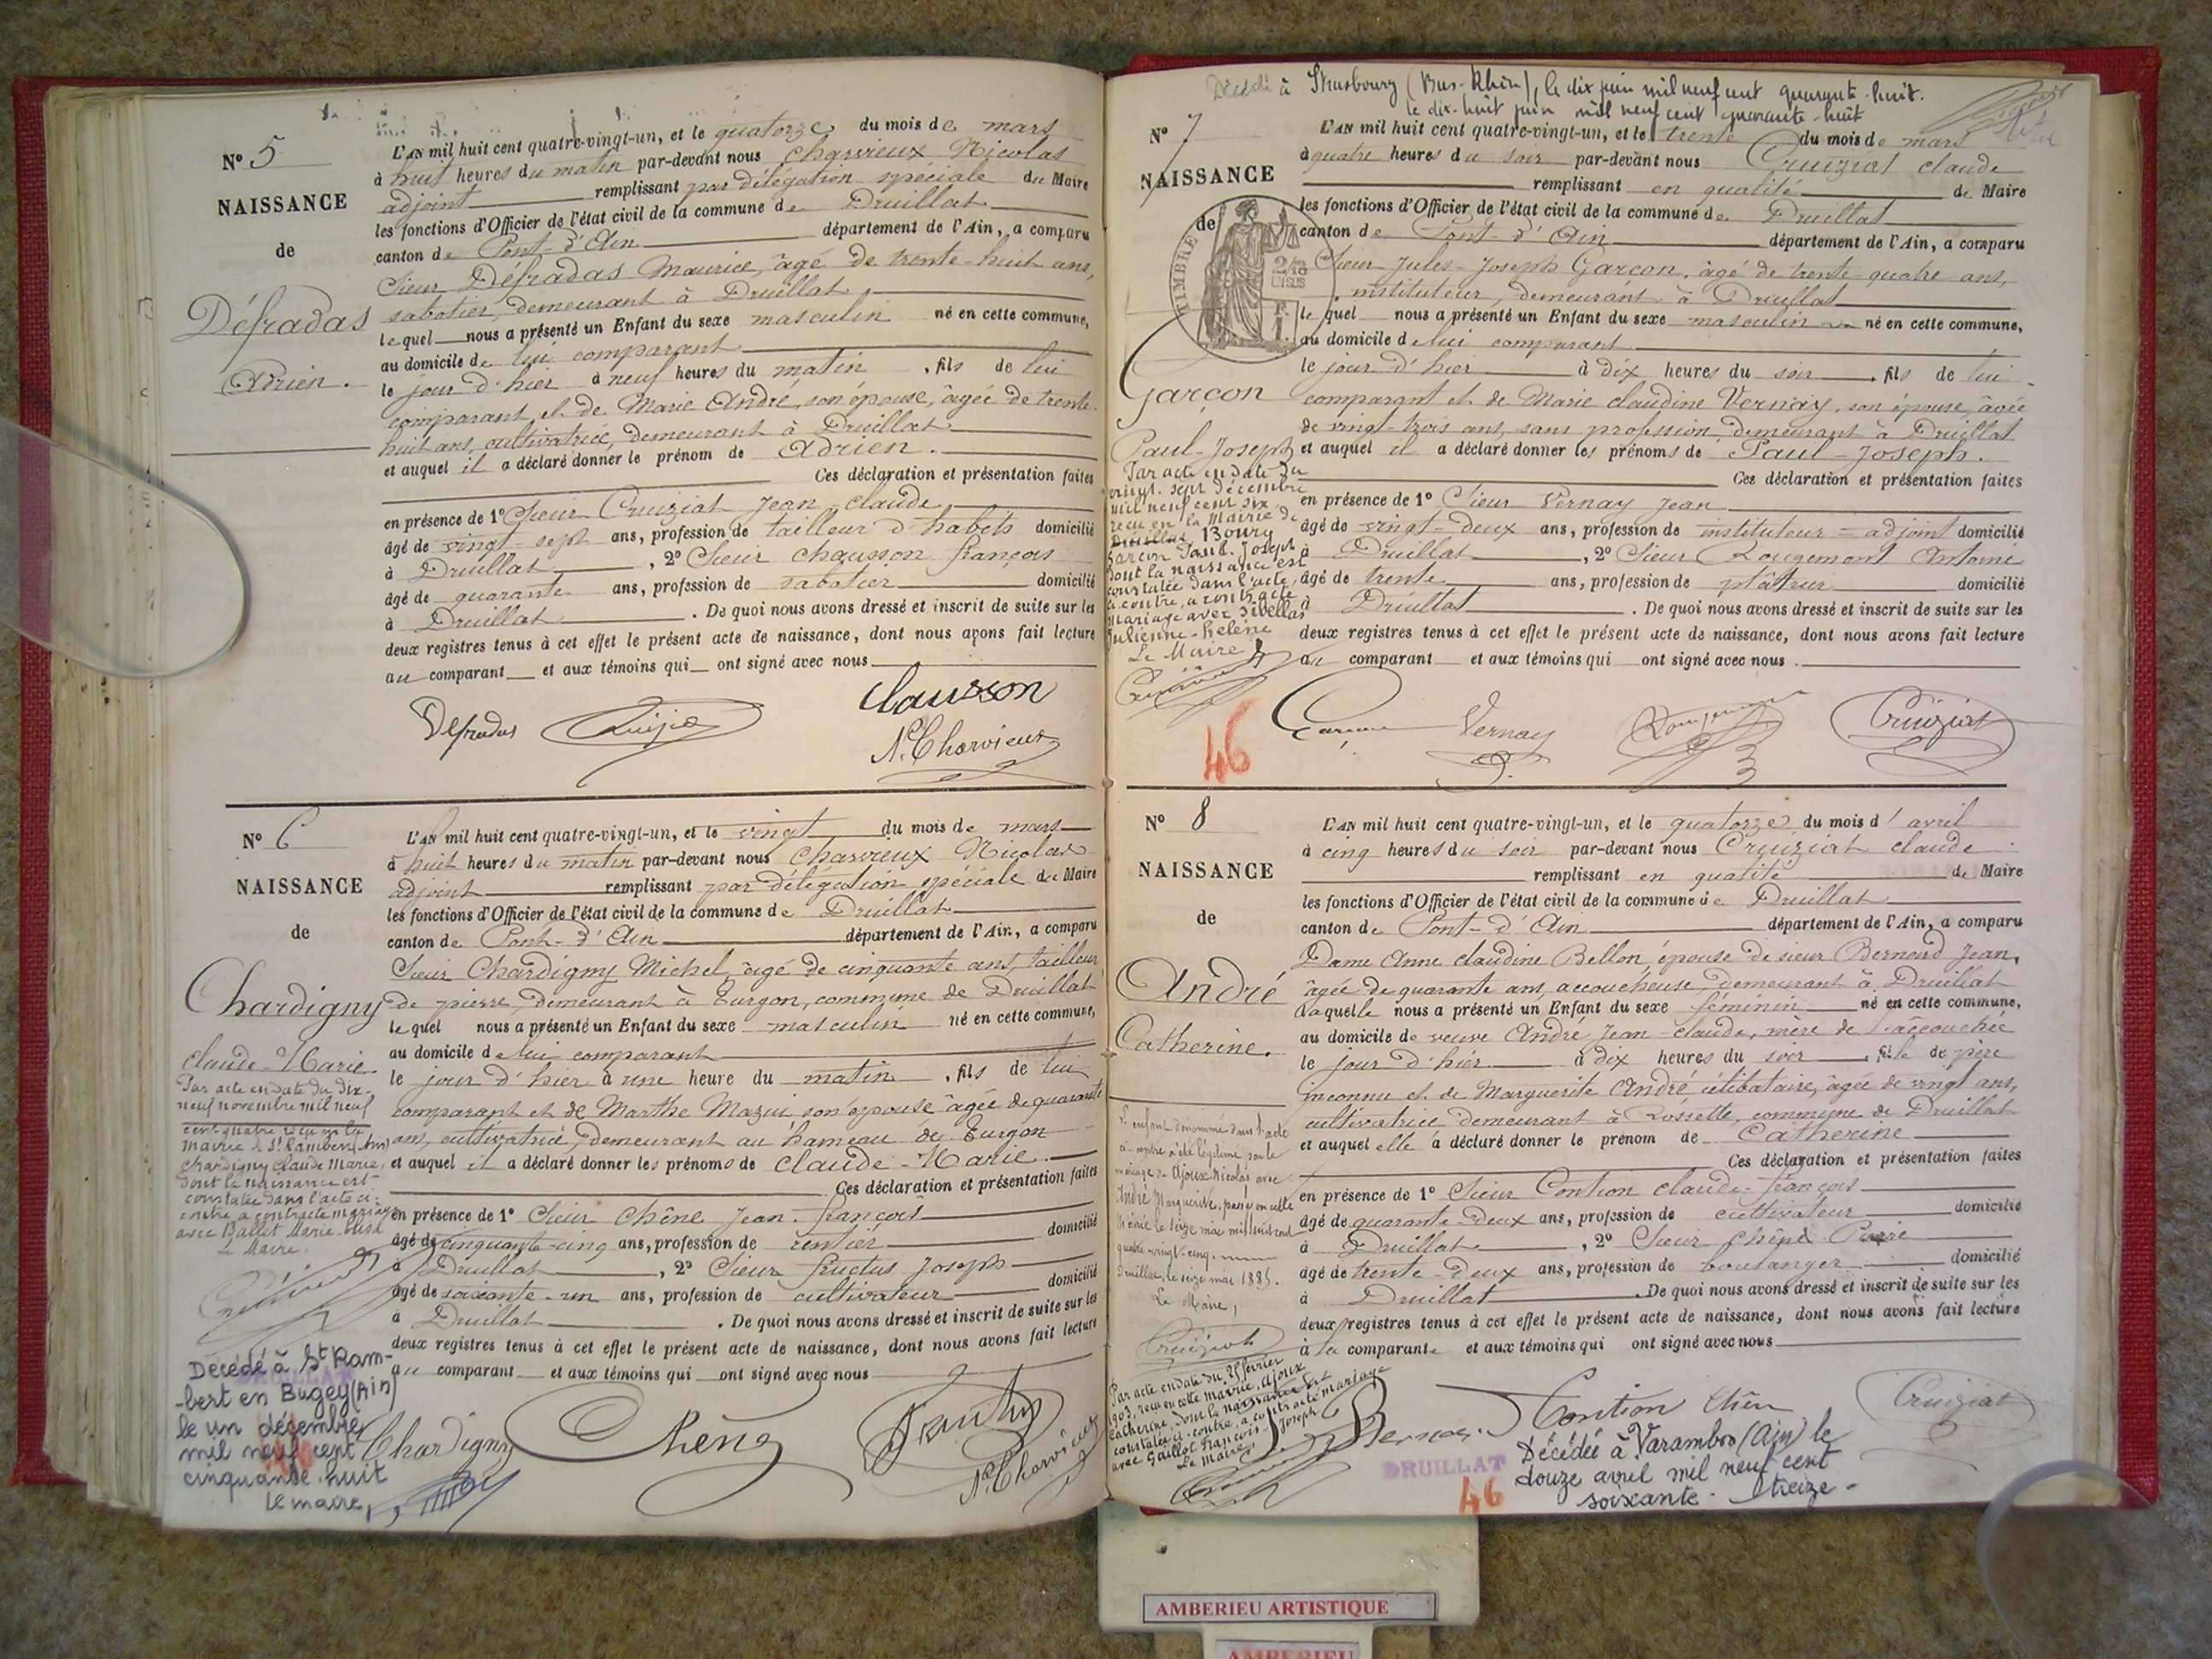 N° 5
NAISSANCE
de
Défradas
Adrien.
L'AN mil huit cent quatre-vingt-un, et le quatorze du mois de mars
à huit heures du matin par-devant nous Charvieux Nicolas
adjoint remplissant par délégation spéciale du Maire
les fonctions d'Officier de l'état civil de la commune de Druillat
canton de Pont-d'Ain département de l'Ain, a comparu
Sieur Défradas Maurice, âgé de trente-huit ans,
sabotier, demeurant à Druillat,
lequel nous a présenté un Enfant du sexe masculin né en cette commune,
au domicile de lui comparant
le jour d'hier à neuf heures du matin, fils de lui
comparant, et de Marie André, son épouse, âgée de trente-
huit ans, cultivatrice, demeurant à Druillat
et auquel il a déclaré donner le prénom de Adrien.
Ces déclaration et présentation faites
en présence de 1° Sieur Cruiziat Jean claude
âgé de vingt-sept ans, profession de tailleur d'habits domicilié
à Druillat, 2° Sieur Chausson françois
âgé de quarante ans, profession de sabotier domicilié
à Druillat. De quoi nous avons dressé et inscrit de suite sur les
deux registres tenus à cet effet le présent acte de naissance, dont nous avons fait lecture
au comparant et aux témoins qui ont signé avec nous
Defradas
Clausson
N. Charvieux
N° 6
NAISSANCE
de
Chardigny
Claude-Marie.
Par acte en date du dix-
neuf novembre mil neuf
cent quatre reçu en la
mairie de St Rambert (Ain)
Chardigny Claude Marie,
dont la naissance est
constatée dans l'acte ci-
contre a contracté mariage
avec Ballet Marie
Le Maire
Décédé à St Ram-
-bert en Bugey (Ain)
le un décembre
mil neuf cent
cinquante huit
Le maire,
L'AN mil huit cent quatre-vingt-un, et le vingt du mois de mars
à huit heures du matin par-devant nous Charvieux Nicolas
adjoint remplissant par délégation spéciale du Maire
les fonctions d'Officier de l'état civil de la commune de Druillat
canton de Pont-d'Ain département de l'Ain, a comparu
Sieur Chardigny Michel, âgé de cinquante ans, tailleur
de pierre, demeurant à Turgon, commune de Druillat
lequel nous a présenté un Enfant du sexe masculin né en cette commune,
au domicile de lui comparant
le jour d'hier à une heure du matin, fils de lui
comparant et de Marthe Mazui son épouse âgée de quarante
ans, cultivatrice, demeurant au hameau de Turgon
et auquel il a déclaré donner les prénoms de Claude-Marie.
Ces déclaration et présentation faites
en présence de 1° Sieur Chêne Jean-françois
âgé de cinquante-cinq ans, profession de rentier domicilié
à Druillat, 2° Sieur fructus Joseph
âgé de soixante-un ans, profession de cultivateur domicilié
à Druillat. De quoi nous avons dressé et inscrit de suite sur les
deux registres tenus à cet effet le présent acte de naissance, dont nous avons fait lecture
au comparant et aux témoins qui ont signé avec nous
Chardigny
Chêne
N. Charvieux
Décédé à Strasbourg (Bas-Rhin), le dix juin mil neuf cent quarante-huit.
le dix-huit juin mil neuf cent quarante-huit
N° 7
NAISSANCE
de
TIMBRE
Garçon
Paul-Joseph
Par acte en date du
vingt-sept décembre
mil neuf cent six
reçu en la Mairie de
Druillat, Bourg
Garçon Paul-Joseph
dont la naissance est
constatée dans l'acte
ci contre, a contracté
mariage avec Sibellas
Julienne-hélène
Le Maire
46
L'AN mil huit cent quatre-vingt-un, et le trente du mois de mars
à quatre heures du soir par-devant nous Cruiziat claude
remplissant en qualité de Maire
les fonctions d'Officier de l'état civil de la commune de Druillat
canton de Pont-d'Ain département de l'Ain, a comparu
Sieur Jules-Joseph Garçon, âgé de trente-quatre ans,
instituteur, demeurant à Druillat
lequel nous a présenté un Enfant du sexe masculin né en cette commune,
au domicile de lui comparant
le jour d'hier à dix heures du soir, fils de lui
comparant et de Marie claudine Vernay, son épouse, âgée
de vingt-trois ans, sans profession, demeurant à Druillat
et auquel il a déclaré donner les prénoms de Paul-Joseph.
Ces déclaration et présentation faites
en présence de 1° Sieur Vernay Jean
âgé de vingt-deux ans, profession de instituteur-adjoint domicilié
à Druillat, 2° Sieur Rougemont Antoine
âgé de trente ans, profession de plâtrier domicilié
à Druillat. De quoi nous avons dressé et inscrit de suite sur les
deux registres tenus à cet effet le présent acte de naissance, dont nous avons fait lecture
au comparant et aux témoins qui ont signé avec nous.
Garçon
Vernay
Rougemont
Cruiziat
N° 8
NAISSANCE
de
André
Catherine.
L'enfant dénommé dans l'acte
ci-contre a été légitimé par le
mariage de Ajoux Nicolas avec
André Marguerite, passé en cette
Mairie le seize mai mil huit cent
quatre-vingt-cinq.
Druillat, le seize mai 1885.
Le Maire,
Cruiziat
Par acte en date du 25 février
1903, reçu en cette mairie, Ajoux
Catherine, dont la naissance est
constatée ci-contre, a contracté mariage
avec Gaillot François-Joseph
Le Maire,
L'AN mil huit cent quatre-vingt-un, et le quatorze du mois d'avril
à cinq heures du soir par-devant nous Cruiziat claude
remplissant en qualité de Maire
les fonctions d'Officier de l'état civil de la commune de Druillat
canton de Pont-d'Ain département de l'Ain, a comparu
Dame Anne claudine Bellon, épouse de sieur Bernard Jean,
âgée de quarante ans, accoucheuse, demeurant à Druillat
laquelle nous a présenté un Enfant du sexe féminin né en cette commune,
au domicile de veuve André Jean-claude, mère de l'accouchée
le jour d'hier à dix heures du soir, fille de père
inconnu et de Marguerite André, célibataire, âgée de vingt ans,
cultivatrice demeurant à Rossette, commune de Druillat
et auquel elle a déclaré donner le prénom de Catherine
Ces déclaration et présentation faites
en présence de 1° Sieur Contion claude-françois
âgé de quarante-deux ans, profession de cultivateur domicilié
à Druillat, 2° Sieur Chêne Pierre
âgé de trente-deux ans, profession de boulanger domicilié
à Druillat. De quoi nous avons dressé et inscrit de suite sur les
deux registres tenus à cet effet le présent acte de naissance, dont nous avons fait lecture
à la comparante et aux témoins qui ont signé avec nous
Contion
Chêne
Cruiziat
DRUILLAT
46
Décédée à Varambon (Ain) le
douze avril mil neuf cent
soixante-treize-
AMBERIEU ARTISTIQUE
AMBERIEU